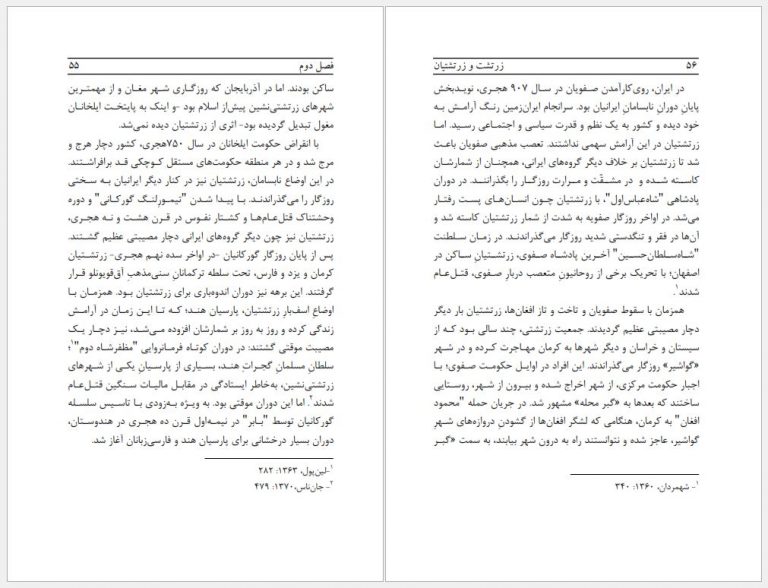 فصل دوم ۵۵
ساکن بودند. اما در آذربایجان که روزگاری شهر مغان و از مهمترین
شهرهای زرتشتی‌نشین پیش‌از اسلام بود -و اینک به پایتخت ایلخانان
مغول تبدیل گردیده بود- اثری از زرتشتیان دیده نمی‌شد.
با انقراض حکومت ایلخانان در سال ۷۵۰هجری، کشور دچار هرج و
مرج شد و در هر منطقه حکومت‌های مستقل کوچکی قد برافراشتند.
در این اوضاع نابسامان، زرتشتیان نیز در کنار دیگر ایرانیان به سختی
روزگار را می‌گذراندند. با پیدا شدن "تیمورلنگ گورکانی" و دوره
وحشتناک قتل‌عام‌ها و کشتار نفوس در قرن هشت و نه هجری،
زرتشتیان نیز چون دیگر گروه‌های ایرانی دچار مصیبتی عظیم گشتند.
پس از پایان روزگار گورکانیان -در اواخر سده نهم هجری- زرتشتیان
کرمان و یزد و فارس، تحت سلطه ترکمانانِ سنی‌مذهبِ آق‌قویونلو قرار
گرفتند. این برهه نیز دوران اندوه‌باری برای زرتشتیان بود. همزمان با
اوضاع اسف‌بارِ زرتشتیان، پارسیان هند؛ که تا این زمان در آرامش
زندگی کرده و روز به روز بر شمارشان افزوده می‌شد، نیز دچار یک
مصیبت موقتی گشتند: در دوران کوتاه فرمانروایی "مظفرشاه دوم"۱؛
سلطانِ مسلمانِ گجراتِ هند، بسیاری از پارسیانِ یکی از شهرهای
زرتشتی‌نشین، به‌خاطر ایستادگی در مقابل مالیات سنگین قتل‌عام
شدند۲. اما این دوران موقتی بود. به ویژه به‌زودی با تاسیس سلسله
گورکانیان توسط "بابر" در نیمه‌اول قرن ده هجری در هندوستان،
دوران بسیار درخشانی برای پارسیان هند و فارسی‌زبانان آغاز شد.
۱-لین‌پول، ۱۳۶۳: ۲۸۲
۲- جان‌ناس،۱۳۷۰: ۴۷۹
۵۶ زرتشت و زرتشتیان
در ایران، روی‌کارآمدن صفویان در سال ۹۰۷ هجری، نویدبخش
پایانِ دورانِ نابسامانِ ایرانیان بود. سرانجام ایران‌زمین رنگ آرامش به
خود دیده و کشور به یک نظم و قدرت سیاسی و اجتماعی رسید. اما
زرتشتیان در این آرامش سهمی نداشتند. تعصب مذهبی صفویان باعث
شد تا زرتشتیان بر خلاف دیگر گروه‌های ایرانی، همچنان از شمارشان
کاسته شده و در مشقّت و مرارت روزگار را بگذرانند. در دوران
پادشاهی "شاه‌عباس‌اول"، با زرتشتیان چون انسان‌های پست رفتار
می‌شد. در اواخر روزگار صفویه به شدت از شمار زرتشتیان کاسته شد و
آن‌ها در فقر و تنگدستی شدید روزگار می‌گذراندند. در زمان سلطنت
"شاه‌سلطان‌حسین" آخرین پادشاه صفوی، زرتشتیانِ ساکن در
اصفهان؛ با تحریک برخی از روحانیونِ متعصب دربارِ صفوی، قتل‌عام
شدند۱.
همزمان با سقوط صفویان و تاخت و تاز افغان‌ها، زرتشتیان بار دیگر
دچار مصیبتی عظیم گردیدند. جمعیت زرتشتی، چند سالی بود که از
سیستان و خراسان و دیگر شهرها به کرمان مهاجرت کرده و در شهر
«گواشیر» روزگار می‌گذراندند. این افراد در اوایل حکومت صفوی؛ با
اجبار حکومت مرکزی، از شهر اخراج شده و بیرون از شهر، روستایی
ساختند که بعدها به «گبر محله» مشهور شد. در جریان حمله "محمود
افغان" به کرمان، هنگامی که لشگر افغان‌ها از گشودن دروازه‌های شهرِ
گواشیر، عاجز شده و نتوانستند راه به درون شهر بیابند، به سمت «گبر
۱- شهمردان، ۱۳۶۰: ۳۴۰